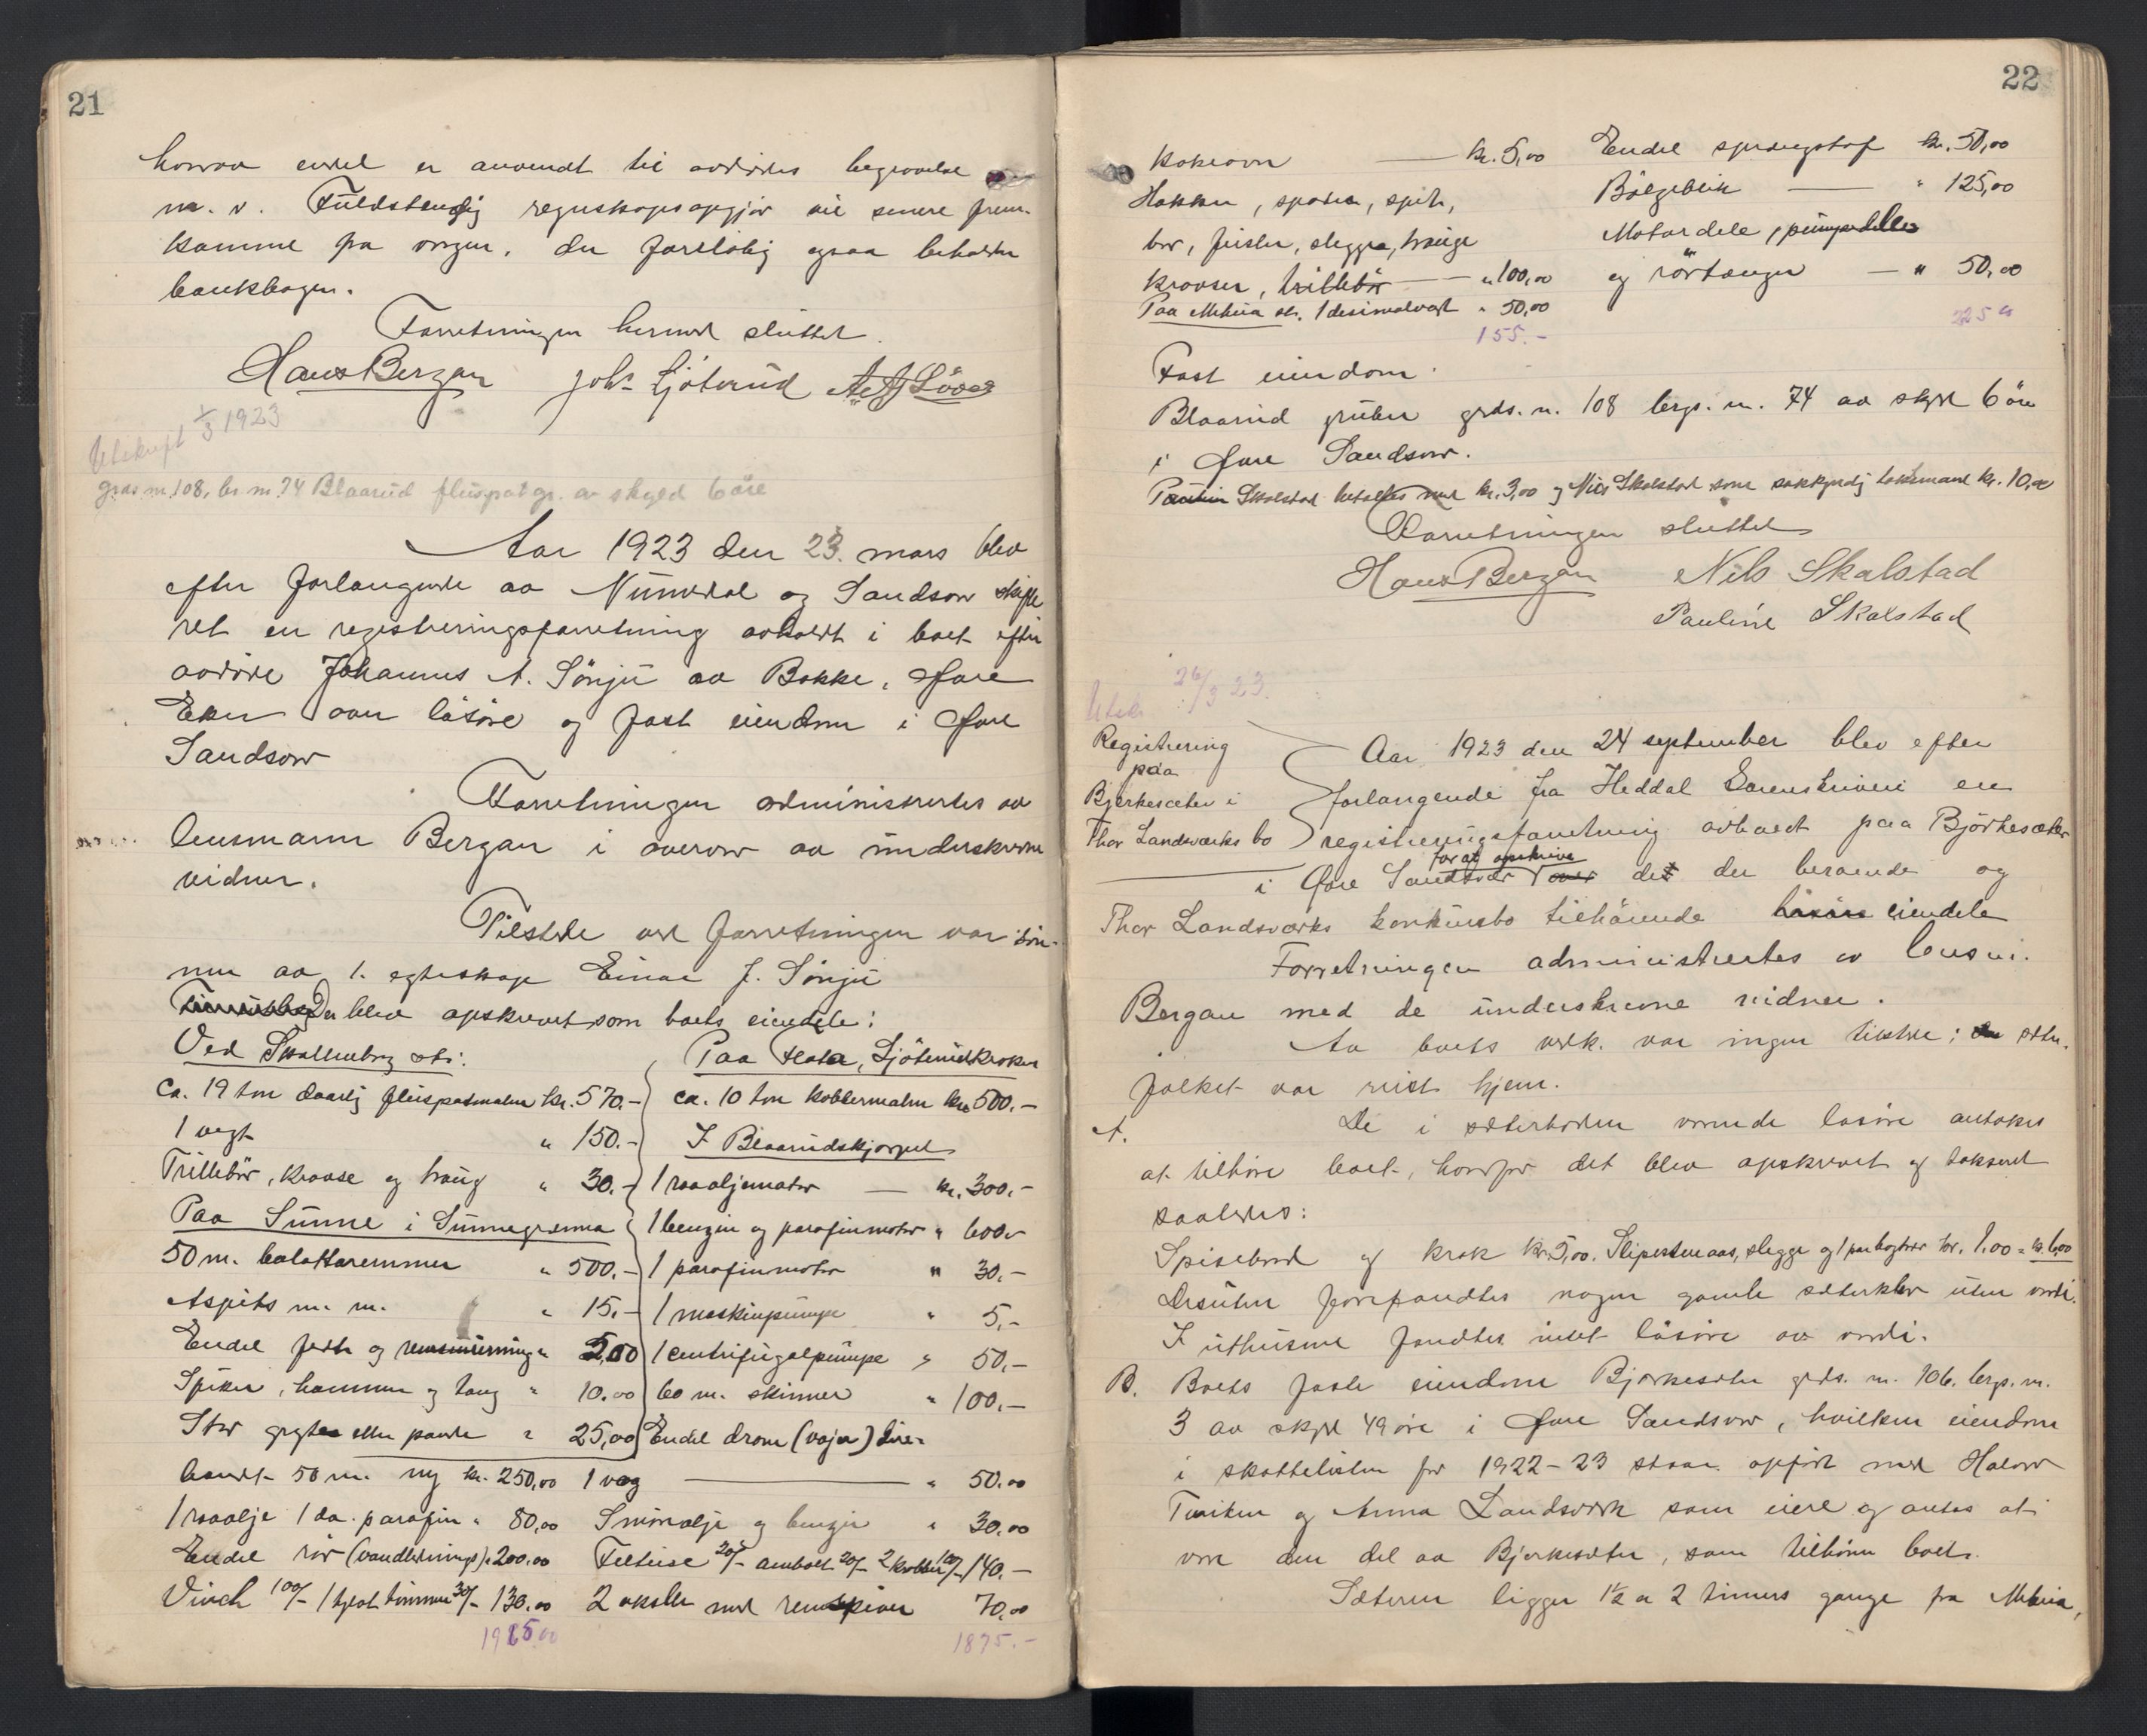 21
hvorav endel er anvendt til avdødes begravelse
m. v. Fuldstendig regnskapsopgjør vil senere frem-
komme fra vergen, der foreløbig ogsaa beholder
bankbogen.
Forretningen hermed sluttet.
Hans Bergan Johs Ljøterud
Utskrift 1/3 1923
grds. nr. 108, br. nr. 74 Blaarud fluspatgr. av skyld 6 øre
Aar 1923 den 23. mars blev
efter forlangende av Numedal og Sandsvær skifte
ret en registreringsforretning avholdt i boet efter
avdøde Johannes A. Sønju av Bakke, Øvre
Eker over løsøre og fast eiendom i Øvre
Sandsvær
Forretningen administrertes av
lensmann Bergan i overvær av underskrevne
vidner.
Tilstede ved forretningen var søn-
nen av 1. egteskap Einar J. Sønju
Der blev opskrevet som boets eiendele:
Ved Skollenborg st.:
ca. 19 ton daarlig fluspatmalm kr. 570.-
1 vegt " 150.-
Trillebør, kravse og traug " 30.-
Paa Sunne i Sunnegrenna
50 m. balattaremmer " 500.-
Aspits m. m. " 15.-
Endel fett og remsmurning " 5,00
Spiker, hammer og tang " 10.00
Stor gryte eller pande " 25,00
Paa Flata, Ljøterudkroken
ca. 10 ton kobbermalm kr. 500.-
I Blaarudskjerpet
1 raaoljemotor — kr. 300.-
1 benzin og parafinmotor " 600.-
1 parafinmotor " 30.-
1 maskinpumpe " 5.-
1 centrifugalpumpe " 50.-
60 m. skinner " 100.-
Endel drom (vajer) live-
bendt 50 m. ny kr. 250,00 1 vog — " 50.00
1 raaolje 1 do. parafin " 80,00 Smøreolje og benzin " 30.00
Endel rør (vandlednings) " 200.00 Feltsise 20/- ambolt 20/- 2 kobber 100/- 140.-
Vinch 100/- 1 hjeol tømmer 30/- 130.00 2 aksler med remskiver 70,00
1965.00 1875.-
22
Kokeovn — kr. 5,00 Endel sprængstof kr. 50,00
Hakker, spader, spett, Bølgeblik — " 125,00
bor, feisler, slegger, trauge Motordele, pumpedeler
kravser, trillebør — " 100,00 og rørtænger — " 50,00
Paa Meheia st. 1 desimalvegt " 50,00
155.- 225.00
Fast eiendom:
Blaarud gruber grds. nr. 108 brgs. nr. 74 av skyld 6 øre
i Øvre Sandsvær.
Pauline Skalstad betaltes med kr. 3,00 og Nils Skalstad som sakkyndig takstmand kr. 10,00
Forretningen sluttet
Hans Bergan Nils Skalstad
Pauline Skalstad
Utskr. 26/3 23.
Registrering
paa
Bjørkesæter i
Thor Landsværks bo
Aar 1923 den 24 september blev efter
forlangende fra Heddal Sorenskriveri en
registreringsforretning avholdt paa Bjørkesæter
i Øvre Sandsvær for at opskrive over det der beroende og
Thor Landsværks konkursbo tilhørende løsøre eiendele
Forretningen administrertes av lensm.
Bergan med de underskrevne vidner.
Av boets vedk. var ingen tilstede; sæter-
folket var reist hjem.
A. De i sæterboden værende løsøre antokes
at tilhøre boet, hvorfor det blev opskrevet og taksert
saaledes:
Spisebord og krak kr. 5,00. Slipesten aas, slegge og 1 par bogtrær kr. 1.00 = kr. 6,00
Desuten forefandtes nogen gamle sæterklær uten verdi.
I uthusene fandtes intet løsøre av verdi.
B. Boets faste eiendom Bjørkesæter grds. nr. 106. brgs. nr.
3 av skyld 49 øre i Øvre Sandsvær, hvilken eiendom
i skattelisten for 1922-23 staar opført med Halvor
Tveiten og Anna Landsværk som eiere og antas at
være den del av Bjørkesæter, som tilhører boet.
Sæteren ligger 1½ a 2 timers gange fra Meheia,